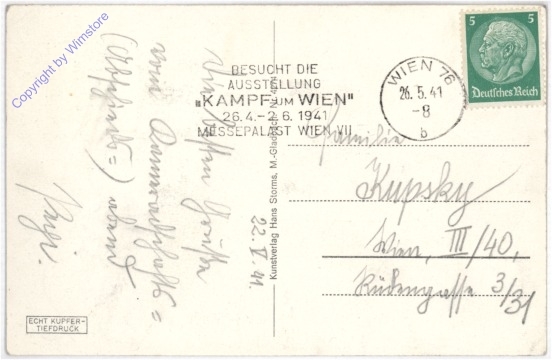 Copyright by Wimstore
BESUCHT DIE
AUSSTELLUNG
"KAMPF UM WIEN"
26.4.-2.6.1941
MESSEPALAST WIEN VII
WIEN 76
26.5.41
-8
b
5 5
Deutsches Reich
22.V.41.
Die besten Grüße
vom Kameradschafts=
(Abschieds=) abend
Kunstverlag Hans Storms, M.-Gladbach
ECHT KUPFER-
TIEFDRUCK
Familie
Kupsky
Wien, III/40,
Rüdengasse 3/31